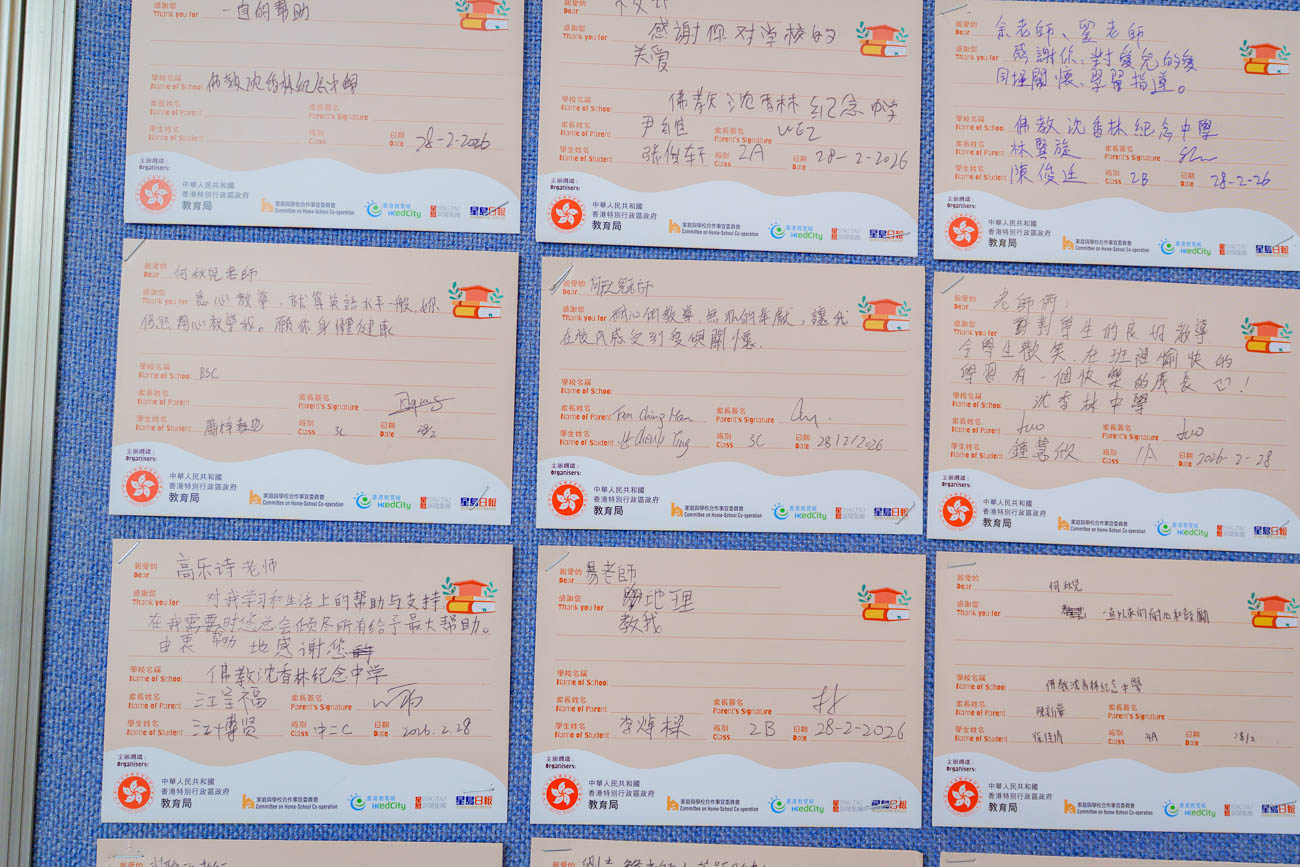 感謝您
Thank you for
一直的幫助
學校名稱
Name of School
佛教沈香林紀念中學
家長姓名
Name of Parent
家長簽名
Parent's Signature
學生姓名
Name of Student
班別
Class
日期
Date
28-2-2026
主辦機構:
Organisers:
中華人民共和國
香港特別行政區政府
教育局
家庭與學校合作事宜委員會
Committee on Home-School Co-operation
香港教育城
HKedCity
SING TAO
新聞集團
星島日報
親愛的
Dear
感謝您
Thank you for
感謝你对学校的
关爱
學校名稱
Name of School
佛教沈香林纪念中学
家長姓名
Name of Parent
尹维
家長簽名
Parent's Signature
學生姓名
Name of Student
张倍轩
班別
Class
2A
日期
Date
28-2-2026
主辦機構:
Organisers:
中華人民共和國
香港特別行政區政府
教育局
家庭與學校合作事宜委員會
Committee on Home-School Co-operation
香港教育城
HKedCity
SING TAO
新聞集團
星島日報
親愛的
Dear
余老師、劉老師
感謝您
Thank you for
感謝你、對愛兒的愛
同埋關懷、學習指導。
學校名稱
Name of School
佛教沈香林紀念中學
家長姓名
Name of Parent
林賢旋
家長簽名
Parent's Signature
學生姓名
Name of Student
陳俊廷
班別
Class
2B
日期
Date
28-2-26
主辦機構:
Organisers:
中華人民共和國
香港特別行政區政府
教育局
家庭與學校合作事宜委員會
Committee on Home-School Co-operation
香港教育城
HKedCity
SING TAO
新聞集團
星島日報
親愛的
Dear
何秋兒老師
感謝您
Thank you for
悉心教導,就算英語水平一般,妳
仍然用心教導我。願你身體健康
學校名稱
Name of School
BSC
家長姓名
Name of Parent
家長簽名
Parent's Signature
學生姓名
Name of Student
班別
Class
3C
日期
Date
28/2
主辦機構:
Organisers:
中華人民共和國
香港特別行政區政府
教育局
家庭與學校合作事宜委員會
Committee on Home-School Co-operation
香港教育城
HKedCity
SING TAO
新聞集團
星島日報
親愛的
Dear
感謝您
Thank you for
細心的教導,無私的奉獻,讓我
在校內感受到愛與關懷.
學校名稱
Name of School
家長姓名
Name of Parent
家長簽名
Parent's Signature
學生姓名
Name of Student
班別
Class
3C
日期
Date
28/2/2026
主辦機構:
Organisers:
中華人民共和國
香港特別行政區政府
教育局
家庭與學校合作事宜委員會
Committee on Home-School Co-operation
香港教育城
HKedCity
SING TAO
新聞集團
星島日報
親愛的
Dear
老師們:
感謝您
Thank you for
對學生的良好教導
令學生歡笑,在班裡愉快的
學習有一個快樂的成長 !
學校名稱
Name of School
沈香林中學
家長姓名
Name of Parent
家長簽名
Parent's Signature
學生姓名
Name of Student
鍾慧欣
班別
Class
1A
日期
Date
2026-2-28
主辦機構:
Organisers:
中華人民共和國
香港特別行政區政府
教育局
家庭與學校合作事宜委員會
Committee on Home-School Co-operation
香港教育城
HKedCity
SING TAO
新聞集團
星島日報
親愛的
Dear
高乐诗老师
感謝您
Thank you for
对我学习和生活上的帮助与支持,
在我需要时您总会倾尽所有给予最大帮助。
由衷地感谢您
學校名稱
Name of School
佛教沈香林纪念中学
家長姓名
Name of Parent
江呈福
家長簽名
Parent's Signature
學生姓名
Name of Student
江博贤
班別
Class
中二C
日期
Date
2026.2.28
主辦機構:
Organisers:
中華人民共和國
香港特別行政區政府
教育局
家庭與學校合作事宜委員會
Committee on Home-School Co-operation
香港教育城
HKedCity
SING TAO
新聞集團
星島日報
親愛的
Dear
易老師
感謝您
Thank you for
地理
教我
學校名稱
Name of School
家長姓名
Name of Parent
家長簽名
Parent's Signature
學生姓名
Name of Student
李焯樑
班別
Class
2B
日期
Date
28-2-2026
主辦機構:
Organisers:
中華人民共和國
香港特別行政區政府
教育局
家庭與學校合作事宜委員會
Committee on Home-School Co-operation
香港教育城
HKedCity
SING TAO
新聞集團
星島日報
親愛的
Dear
何秋兒
感謝您
Thank you for
一直以來的耐心和鼓勵
學校名稱
Name of School
佛教沈香林紀念中學
家長姓名
Name of Parent
家長簽名
Parent's Signature
學生姓名
Name of Student
班別
Class
4A
日期
Date
28/2
主辦機構:
Organisers:
中華人民共和國
香港特別行政區政府
教育局
家庭與學校合作事宜委員會
Committee on Home-School Co-operation
香港教育城
HKedCity
SING TAO
新聞集團
星島日報
親愛的
親愛的
親愛的